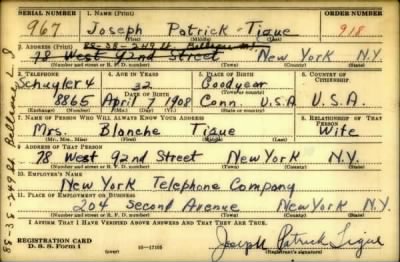 SERIAL NUMBER 1. NAME (Print) ORDER NUMBER
967 Joseph Patrick Tigue 918
(First) (Middle) (Last)
2. ADDRESS (Print) 88-38-249 St
78 West 92nd Street New York N.Y.
(Number and street or R. F. D. number) (Town) (County) (State)
3. TELEPHONE 4. AGE IN YEARS 5. PLACE OF BIRTH 6. COUNTRY OF CITIZENSHIP
Schuyler 4 32 Goodyear
8865 April 7 1908 Conn. U.S.A. U.S.A.
7. NAME OF PERSON WHO WILL ALWAYS KNOW YOUR ADDRESS 8. RELATIONSHIP OF THAT PERSON
Mrs. Blanche Tigue Wife
(Mr., Mrs., Miss) (First) (Middle) (Last)
9. ADDRESS OF THAT PERSON
78 West 92nd Street New York N.Y.
(Number and street or R. F. D. number) (Town) (County) (State)
10. EMPLOYER'S NAME
New York Telephone Company
11. PLACE OF EMPLOYMENT OR BUSINESS
204 Second Avenue New York N.Y.
(Number and street or R. F. D. number) (Town) (County) (State)
I AFFIRM THAT I HAVE VERIFIED ABOVE ANSWERS AND THAT THEY ARE TRUE.
REGISTRATION CARD
D. S. S. Form 1 (over) 16-17105 Joseph Patrick Tigue
(Registrant's signature)
88-38-249 St Bellerose L I